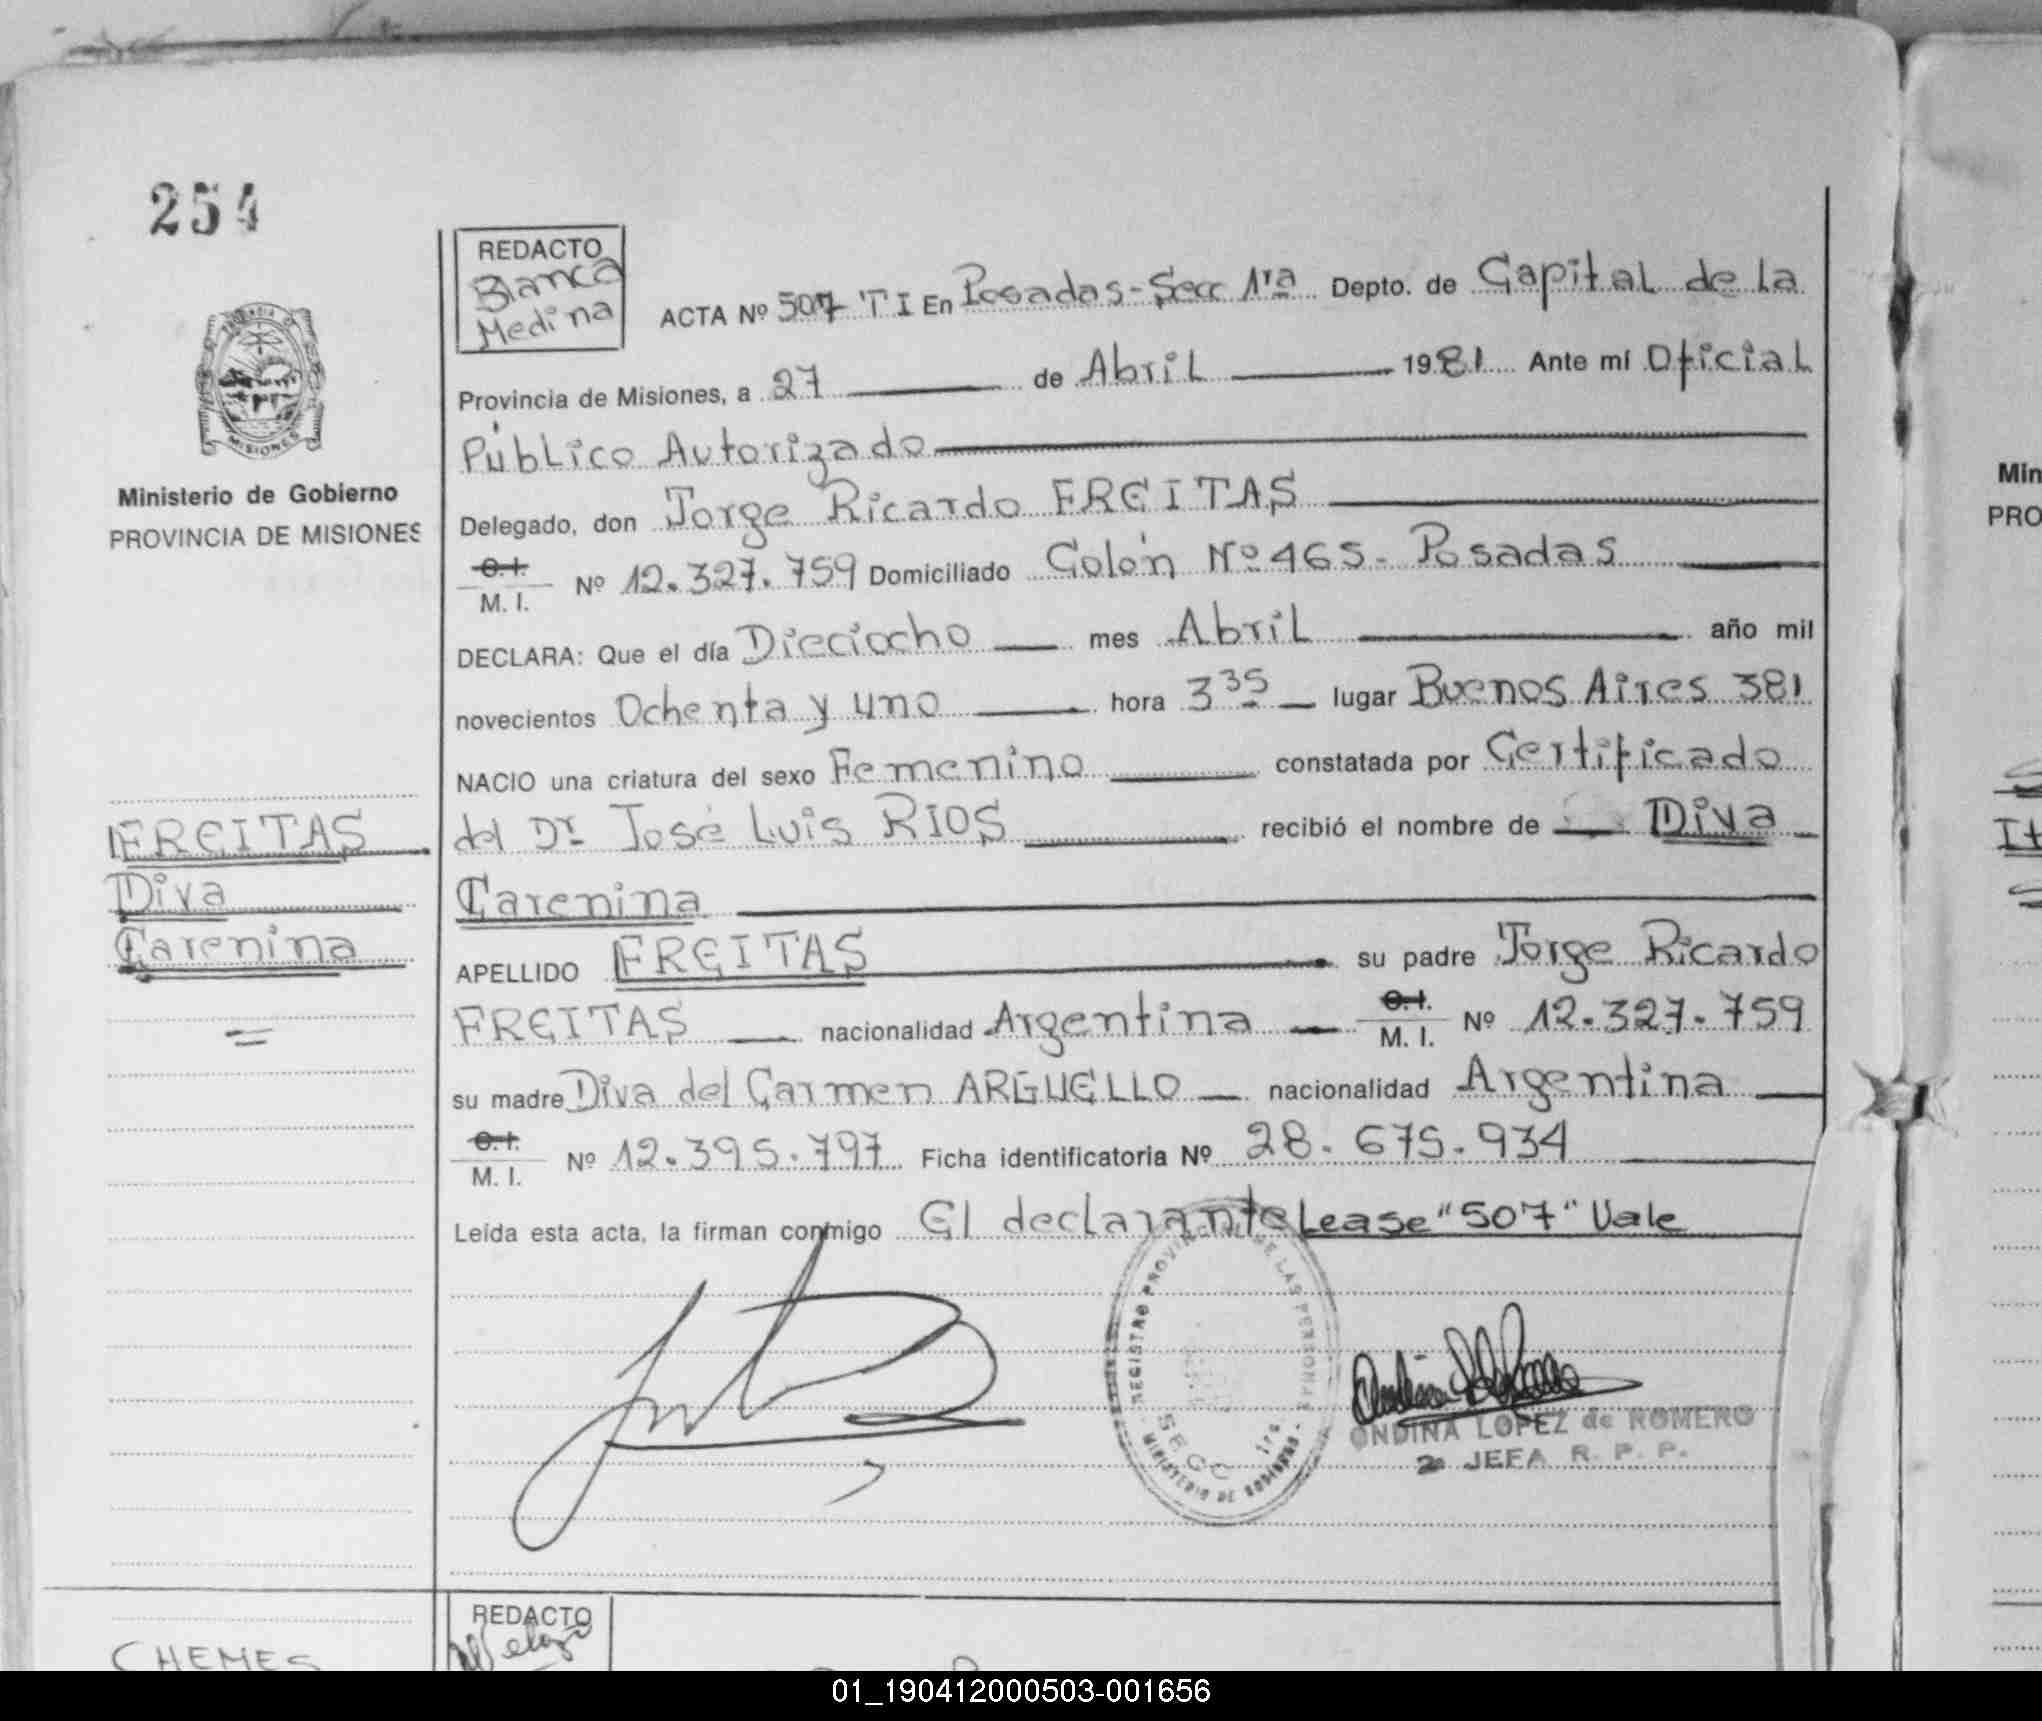 254
REDACTO
Blanca
Medina
ACTA Nº 507 T I En Posadas-Secc 1ra Depto. de Capital de la
Provincia de Misiones, a 27 de Abril 1981 Ante mí Oficial
Público Autorizado
Ministerio de Gobierno
PROVINCIA DE MISIONES
Delegado, don Jorge Ricardo FREITAS
C.I.
M. I. Nº 12.327.759 Domiciliado Colón Nº 465- Posadas
DECLARA: Que el día Dieciocho mes Abril año mil
novecientos Ochenta y uno hora 3 35 lugar Buenos Aires 381
NACIO una criatura del sexo Femenino constatada por Certificado
del Dr José Luis RIOS recibió el nombre de Diva
Carenina
FREITAS
Diva
Carenina
APELLIDO FREITAS su padre Jorge Ricardo
FREITAS nacionalidad Argentina C.I.
M. I. Nº 12.327.759
su madre Diva del Carmen ARGUELLO nacionalidad Argentina
C.I.
M. I. Nº 12.395.797 Ficha identificatoria Nº 28.675.934
Leída esta acta, la firman conmigo El declarante Lease "507" Vale
REGISTRO PROVINCIAL DE LAS PERSONAS
SECC 1ra
MINISTERIO DE GOBIERNO
ONDINA LOPEZ de ROMERO
2a JEFA R. P. P.
REDACTO
CHEMES
Min
PRO
It
01_190412000503-001656